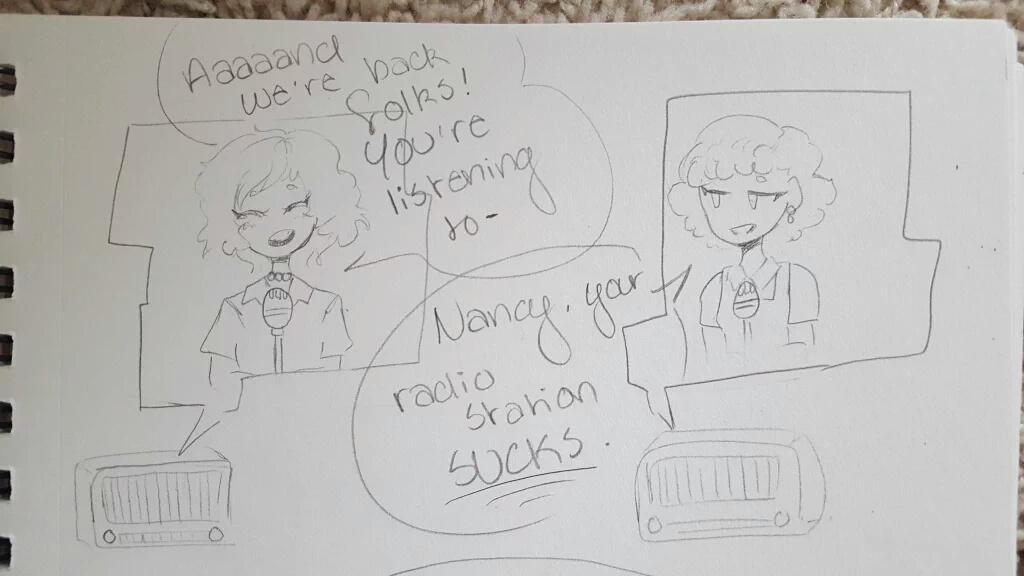 Aaaaand
we're back
folks!
you're
listening
to-
Nancy, your
radio
station
SUCKS.